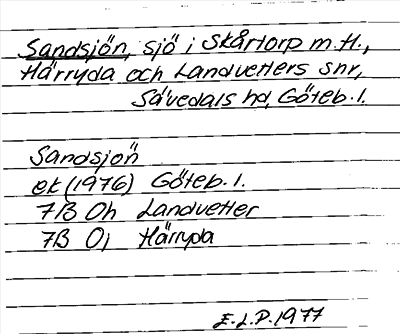 Sandsjön, sjö i Skårtorp m.fl.,
Härryda och Landvetters snr,
Sävedals hd, Göteb. l.
Sandsjön
ek (1976) Göteb. l.
7B Oh Landvetter
7B Oj Härryda
E.L.P. 1977